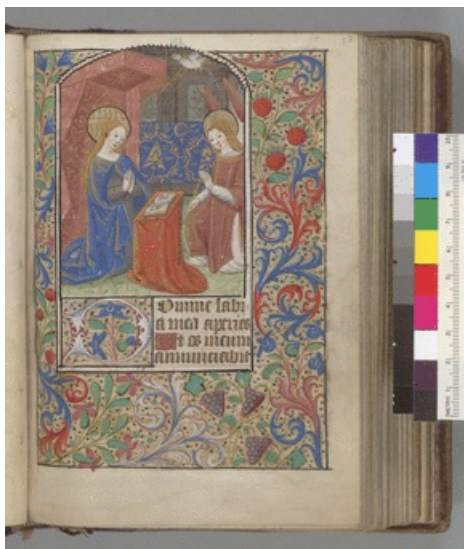 Domine labi
a mea aperies
Et os meum
annunciabit